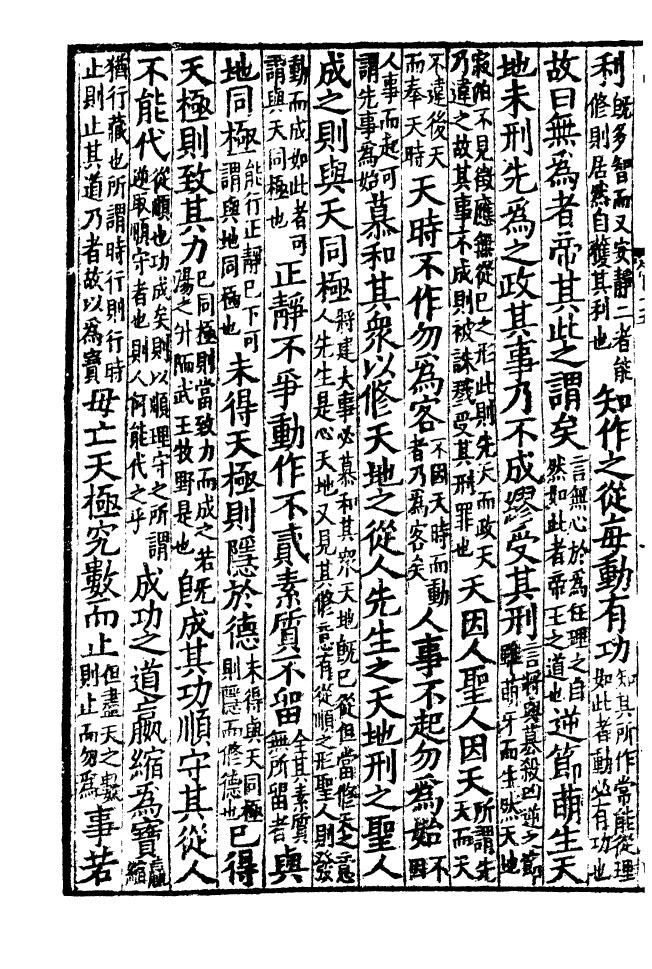 利既多智而又安靜二者能修則居然自獲其利也知作之從每動有功知其所作常能從理如此者動必有功也
故曰無爲者帝其此之謂矣言無心於爲任理之自然如此者帝王之道也逆節萌生天
地未刑先爲之政其事乃不成繆受其刑言將與慕殺凶逆之節雖萌牙而生然天地
寂怕不見徵應無從已之形此則先天而政天乃違之故其事不成則被誅戮受其刑罪也天因人聖人因天所謂先天而天
不違後天而奉天時天時不作勿爲客不因天時而動者乃爲客矣人事不起勿爲始不因
人事而起可謂先事爲始慕和其衆以修天地之從人先生之天地刑之聖人
成之則與天同極將建大事必慕和其衆天地既已從但當修天之意人先生是心天地又見其修意有從順之形聖人則發
動而成如此者可謂與天同極也正靜不爭動作不貳素質不留全其素質無所留者與
地同極能行正靜已下可謂與地同極也未得天極則隱於德未得與天同極則隱而修德也已得
天極則致其力已同極則當致力而成之若湯之升陑武王牧野是也既成其功順守其從人
不能代從順也功成矣則以順理守之所謂逆取順守者也則人何能代之乎成功之道嬴縮爲寶嬴縮
猶行藏也所謂時行則行時止則止其道乃者故以爲寶毋亡天極究數而止但盡天之數則止而勿爲事若